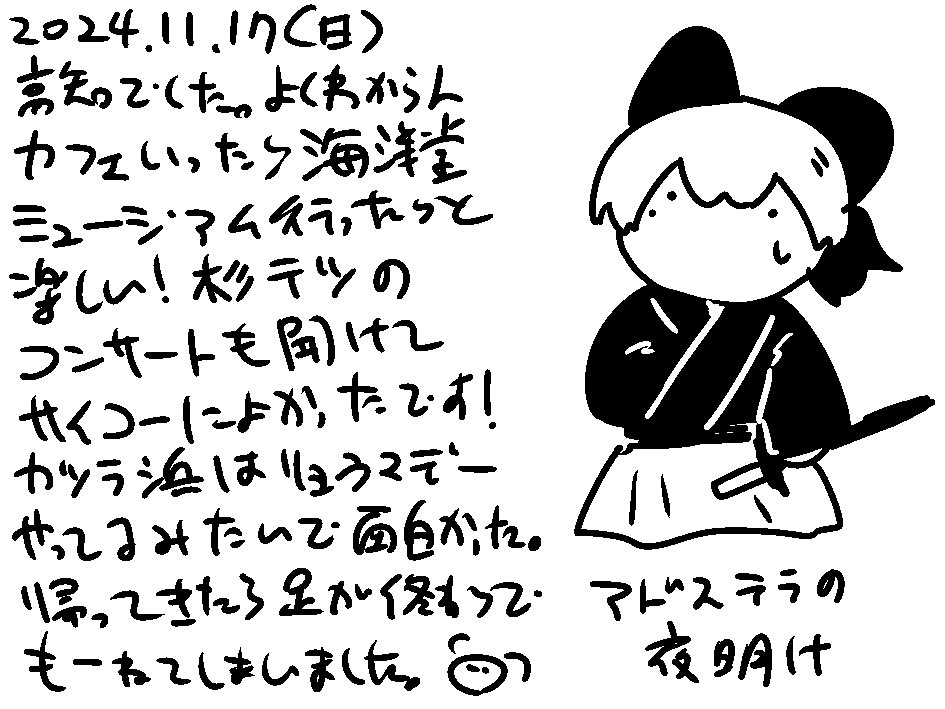 2024.11.17(日)
高知でした。よくわからん
カフェいったり海洋堂
ミュージアム行ったりと
楽しい!杉テツの
コンサートも聞けて
サイコーによかったです!
カツラ浜はりょうマデー
やってるみたいで面白かった。
帰ってきたら足が終わって
もーねてしまいました。
アドズステラの
夜明け